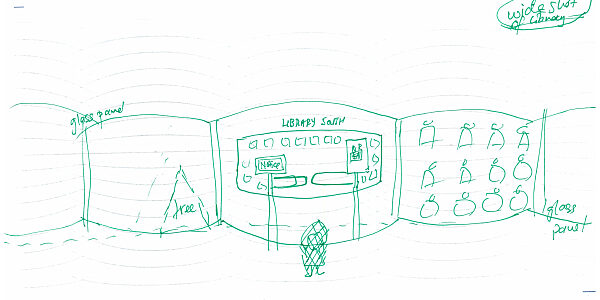 wide shot
of library
glass panel
LIBRARY SOUTH
tree
glass